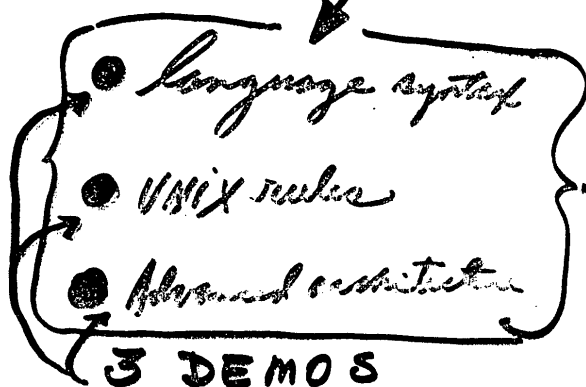 language syntax
UNIX rules
Advanced architecture
3 DEMOS